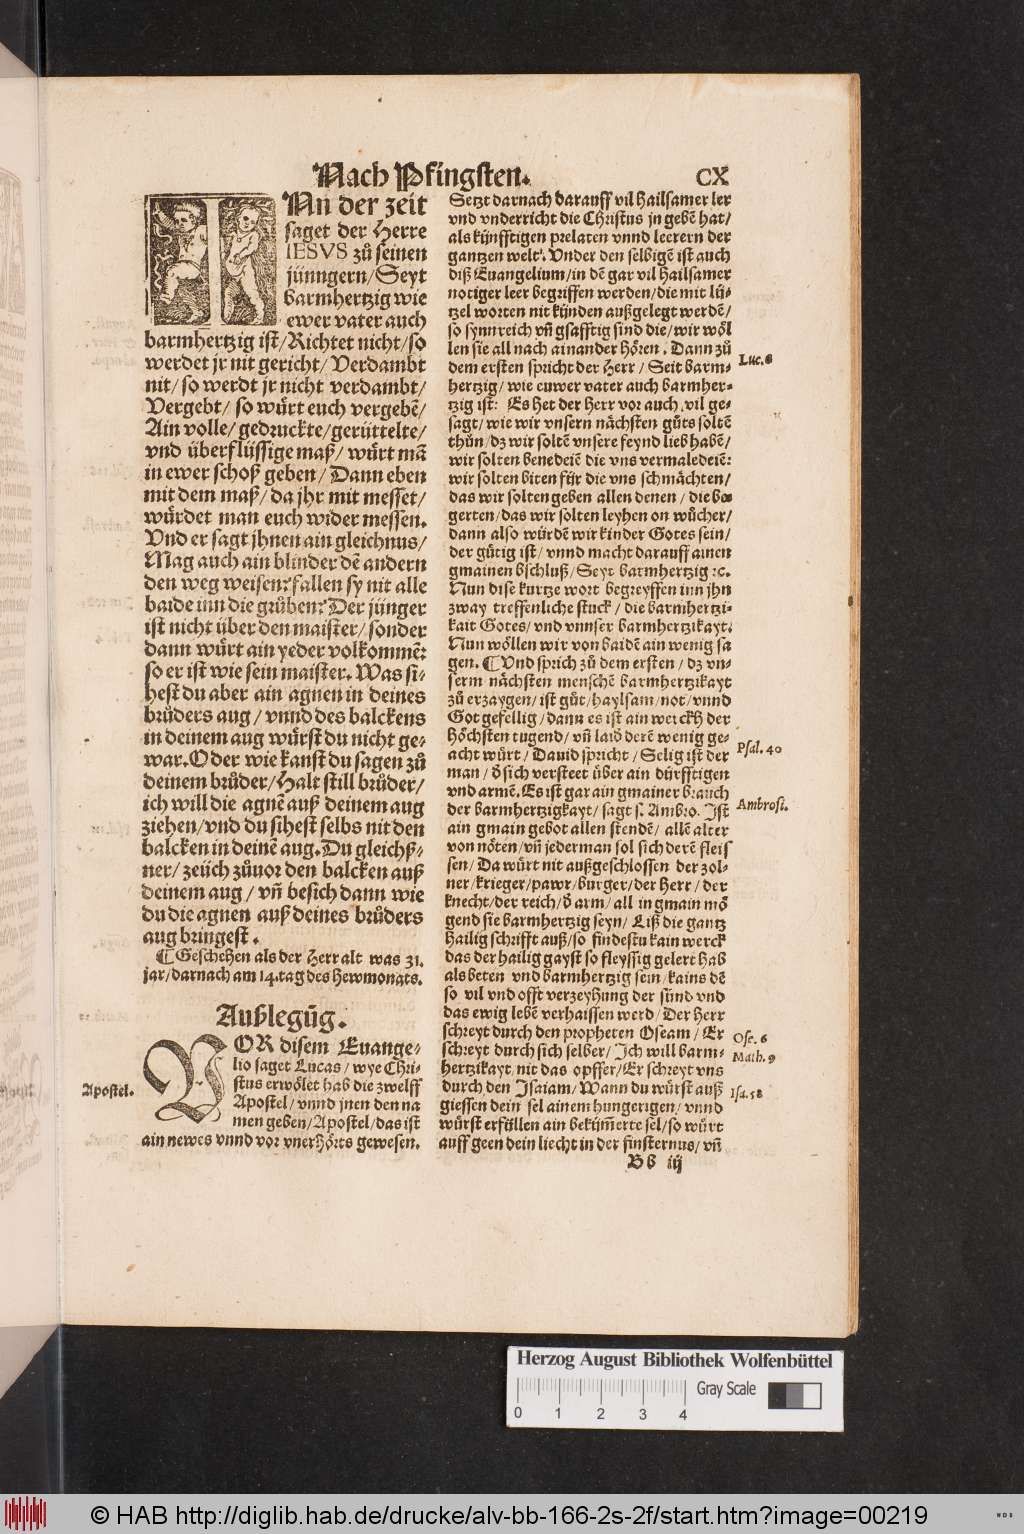 Nach Pfingsten. CX
IN der zeit
saget der Herre
IESVS zů seinen
jünngern/Seyt
barmhertzig wie
ewer vater auch
barmhertzig ist/Richtet nicht/so
werdet jr nit gericht/Verdambt
nit/so werdt jr nicht verdambt/
Vergebt/so würt euch vergebē/
Ain volle/gedruckte/gerüttelte/
vnd überflüssige maß/würt mā
in ewer schoß geben/Dann eben
mit dem maß/da jhr mit messet/
würdet man euch wider messen.
Vnd er sagt jhnen ain gleichnus/
Mag auch ain blinder dē andern
den weg weisen? fallen sy nit alle
baide inn die grůben? Der jünger
ist nicht über den maister/sonder
dann würt ain yeder volkommē:
so er ist wie sein maister. Was si-
hest du aber ain agnen in deines
brůders aug/vnnd des balckens
in deinem aug würst du nicht ge-
war. Oder wie kanst du sagen zů
deinem brůder/Halt still brůder/
ich will die agnē auß deinem aug
ziehen/vnd du sihest selbs nit den
balcken in deinē aug. Du gleichß-
ner/zeüch zůuor den balcken auß
deinem aug/vn̄ besich dann wie
du die agnen auß deines brůders
aug bringest.
¶ Geschehen als der Herr alt was 31.
jar/darnach am 14. tag des Hewmonats.
Außlegūg.
VOR disem Euange-
lio saget Lucas/wye Chri-
stus erwölet hab die zwelff
Apostel/vnnd jnen den na
men geben/Apostel/das ist
ain newes vnnd vor vnerhörts gewesen.
Apostel.
Setzt darnach darauff vil hailsamer ler
vnd vnderricht die Christus jn gebē hat/
als künfftigen prelaten vnnd leerern der
gantzen welt. Vnder den selbigē ist auch
diß Euangelium/in dē gar vil hailsamer
notiger leer begriffen werden/die mit lü-
tzel worten nit künden außgelegt werdē/
so synnreich vn̄ gsafftig sind die/wir wöl
len sie all nach ainander hören. Dann zů
dem ersten spricht der Herr/Seit barm-
hertzig/wie euwer vater auch barmher-
tzig ist: Es het der Herr vor auch vil ge-
sagt/wie wir vnsern nächsten gůts soltē
thůn/dz wir soltē vnsere feynd lieb habē/
wir solten benedeiē die vns vermaledeiē:
wir solten biten für die vns schmächten/
das wir solten geben allen denen/die be
gerten/das wir solten leyhen on wůcher/
dann also würdē wir kinder Gotes sein/
der gütig ist/vnnd macht darauff ainen
gmainen bschluß/Seyt barmhertzig ꝛc.
Nun dise kurtze wort begreyffen inn jhn
zway treffenliche stuck/die barmhertzi-
kait Gotes/vnd vnnser barmhertzikayt.
Nun wöllen wir von baidē ain wenig sa
gen. ¶ Vnd sprich zů dem ersten/dz vn-
serm nächsten menschē barmhertzikayt
zů erzaygen/ist gůt/haylsam/not/vnnd
Got gefellig/dann es ist ain werckh der
höchsten tugend/vn̄ laid derē wenig ge-
acht würt/Dauid spricht/Selig ist der
man/ð sich versteet über ain dürfftigen
vnd armē. Es ist gar ain gmainer brauch
der barmhertzigkayt/sagt s. Ambro. Ist
ain gmain gebot allen stendē/allē alter
von nöten/vn̄ jederman sol sich derē fleis
sen/Da würt nit außgeschlossen der zol-
ner/krieger/pawr/burger/der Herr/der
knecht/der reich/ð arm/all in gmain mö
gend sie barmhertzig seyn/Liß die gantz
hailig schrifft auß/so findestu kain werck
das der hailig gayst so fleyssig gelert hab
als beten vnd barmhertzig sein/kains dē
so vil vnd offt verzeyhung der sünd vnd
das ewig lebē verhaissen werd/Der Herr
schreyt durch den propheten Oseam/Er
schreyt durch sich selber/Ich will barm-
hertzikayt nit das opffer/Er schreyt vns
durch den Isaiam/Wann du würst auß
giessen dein sel ainem hungerigen/vnnd
würst erfüllen ain bekümerte sel/so würt
auff geen dein liecht in der finsternus/vn̄
Bb iij
Luc. 6
Psal. 40
Ambrosi.
Ose. 6
Math. 9
Isa. 58
Herzog August Bibliothek Wolfenbüttel
Gray Scale
0 1 2 3 4
© HAB http://diglib.hab.de/drucke/alv-bb-166-2s-2f/start.htm?image=00219